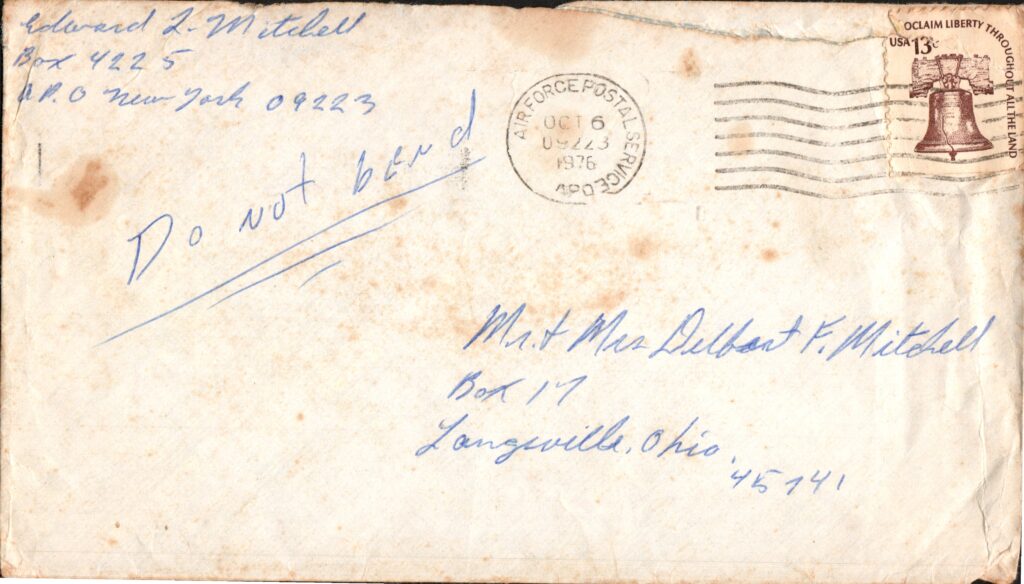 Edward L. Mitchell
Box 4225
A.P.O New York 09223
Do not bend
AIR FORCE POSTAL SERVICE
OCT 6
09223
1976
APO
OCLAIM LIBERTY THROUGHOUT ALL THE LAND
USA 13c
Mr. & Mrs Delbert F. Mitchell
Box 17
Langsville, Ohio.
45741